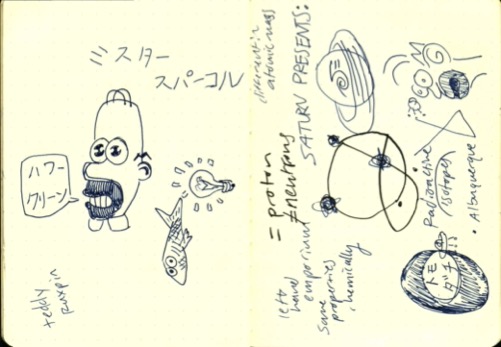 ミスター
スパーコル
ハワー
クリーン!
teddy
ruxpin
different in
atomic mass
SATURN PRESENTS:
= proton
≠ neutrons
left
hand
emporium
same
properties
chemically
Radioactive
isotopes
• Albuquerque
トモ
ダチ
!!